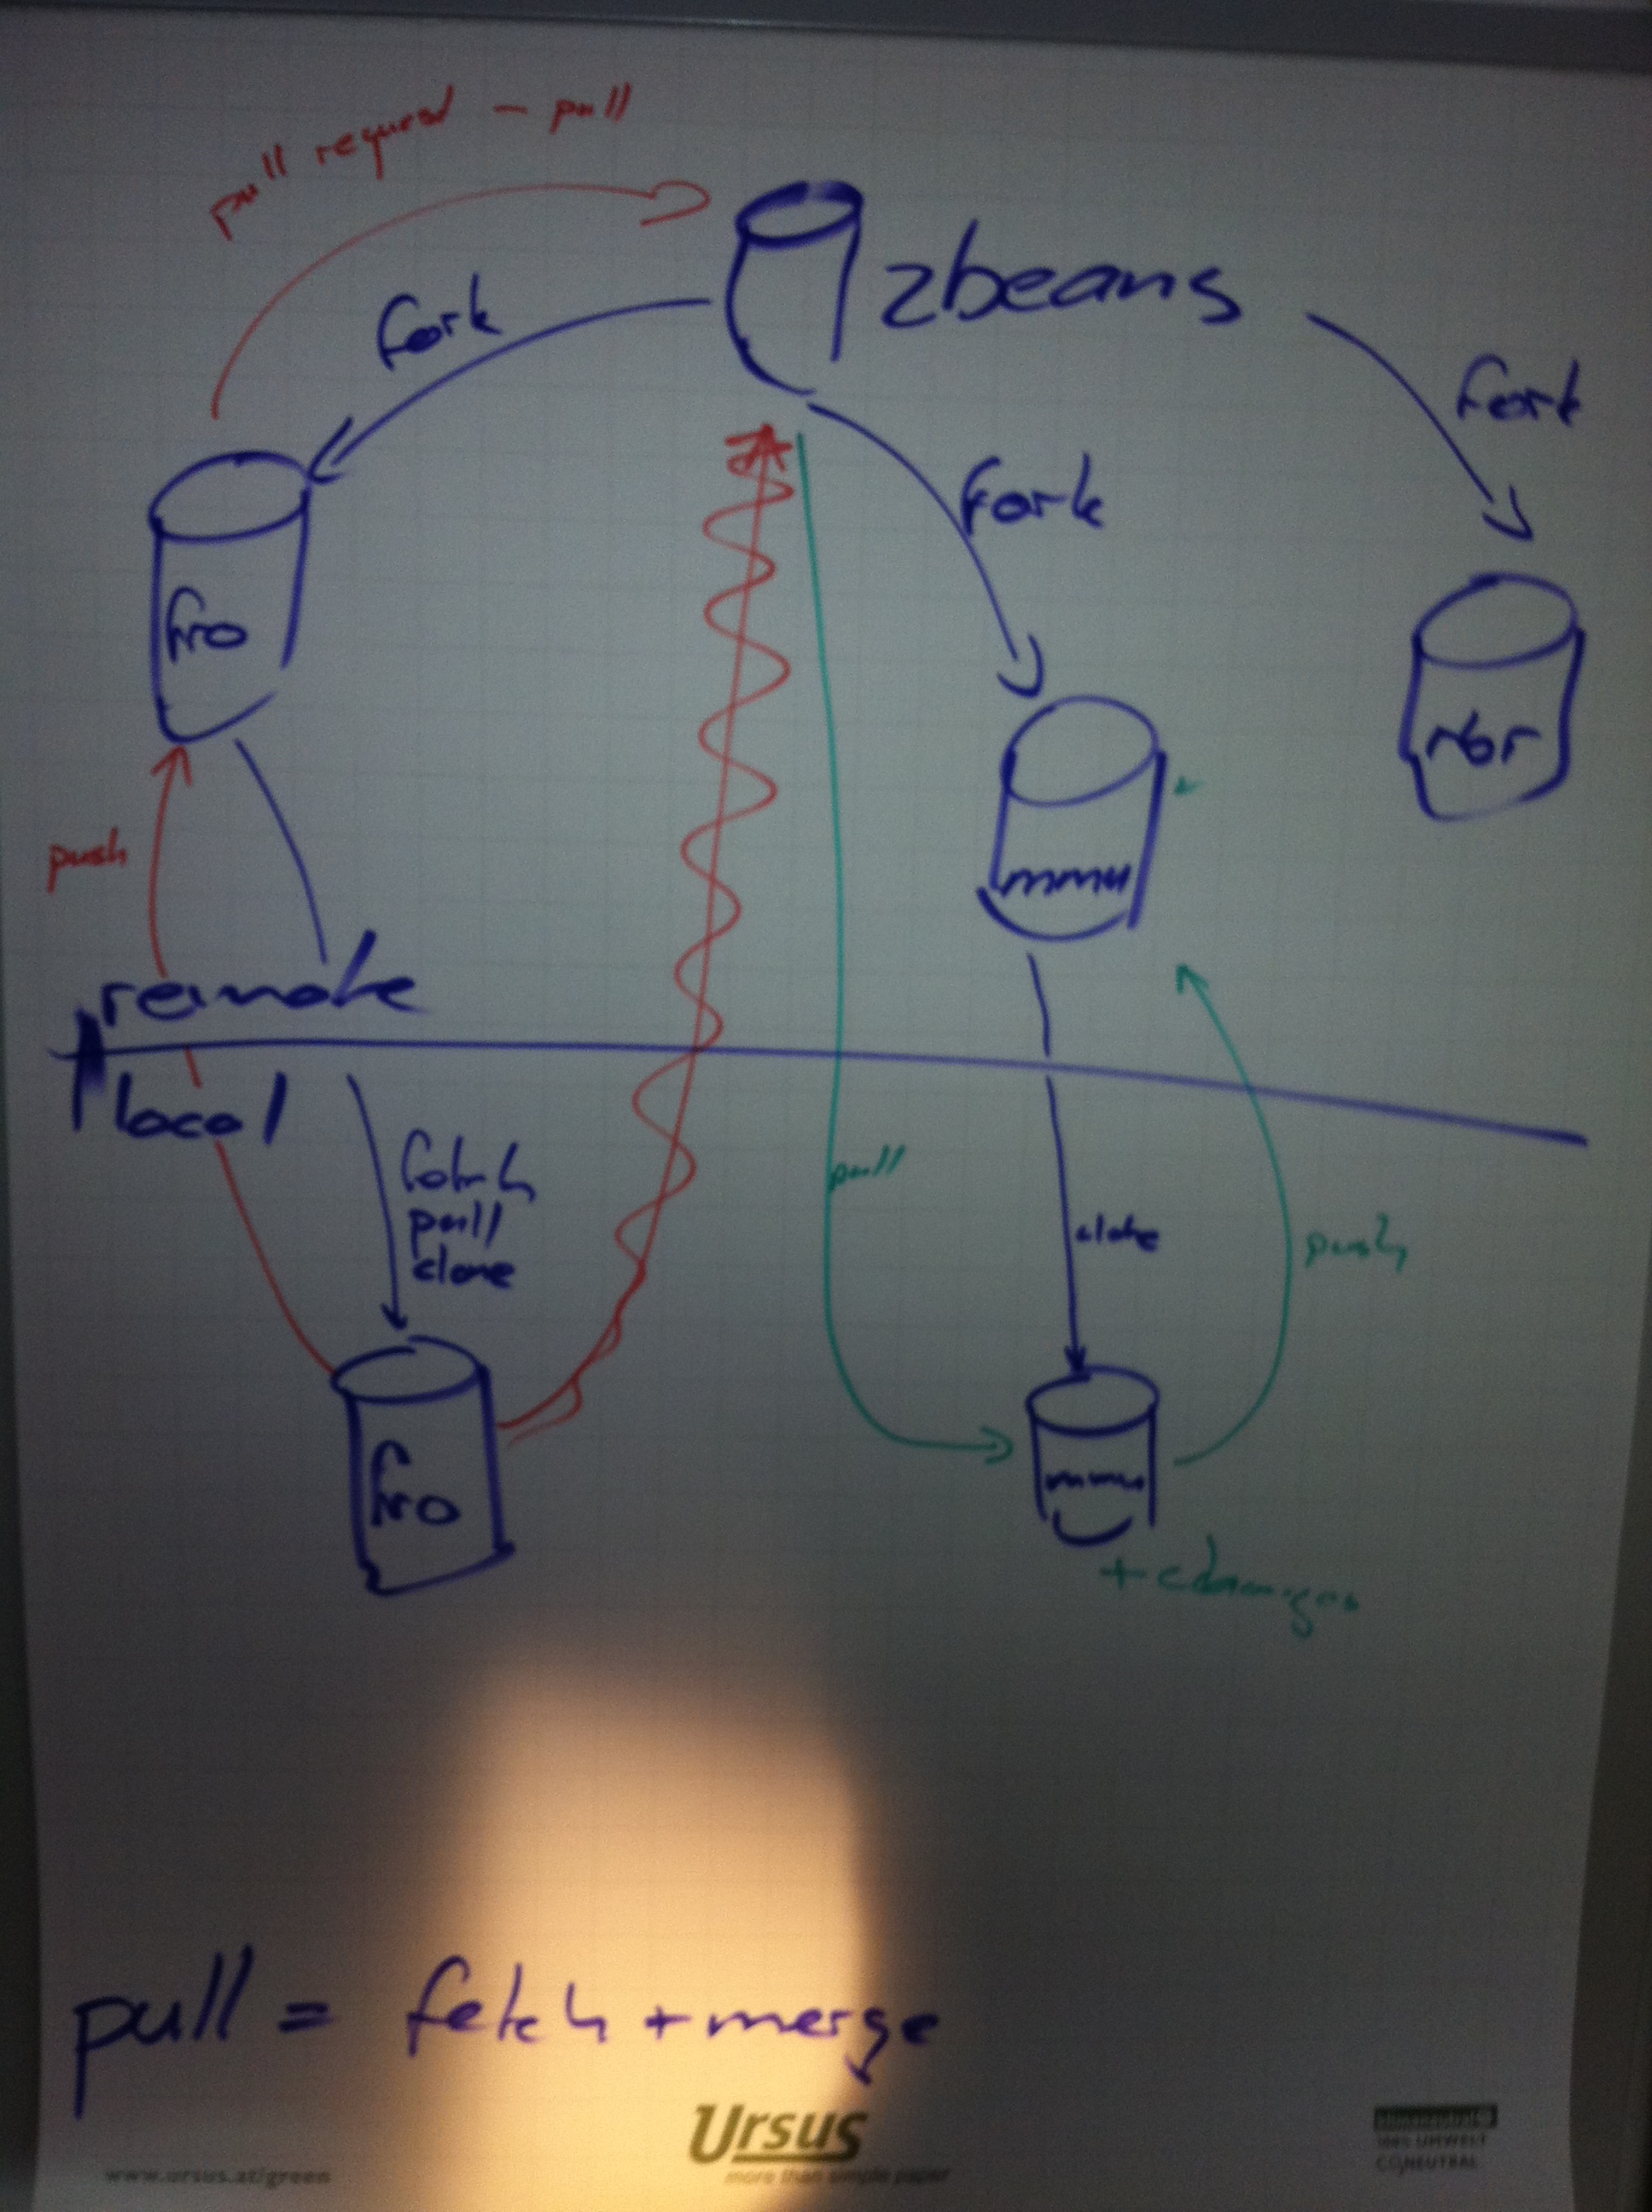 pull request – pull
fork
zbeans
fork
fork
fro
nbr
mmu
push
remote
local
fetch
pull
clone
pull
clone
push
fro
mmu
+ changes
pull = fetch + merge
Ursus
more than simple paper
www.ursus.at/green
klimaneutral
100% UMWELT
CO2NEUTRAL